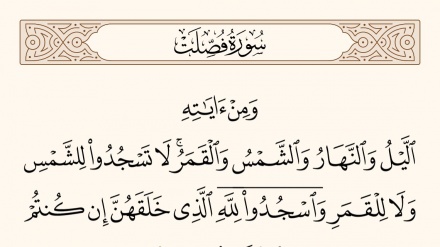 سُورَةُ فُصِّلَتْ
وَمِنْ ءَايَٰتِهِ
ٱلَّيْلُ وَٱلنَّهَارُ وَٱلشَّمْسُ وَٱلْقَمَرُ ۚ لَا تَسْجُدُوا۟ لِلشَّمْسِ
وَلَا لِلْقَمَرِ وَٱسْجُدُوا۟ لِلَّهِ ٱلَّذِى خَلَقَهُنَّ إِن كُنتُمْ